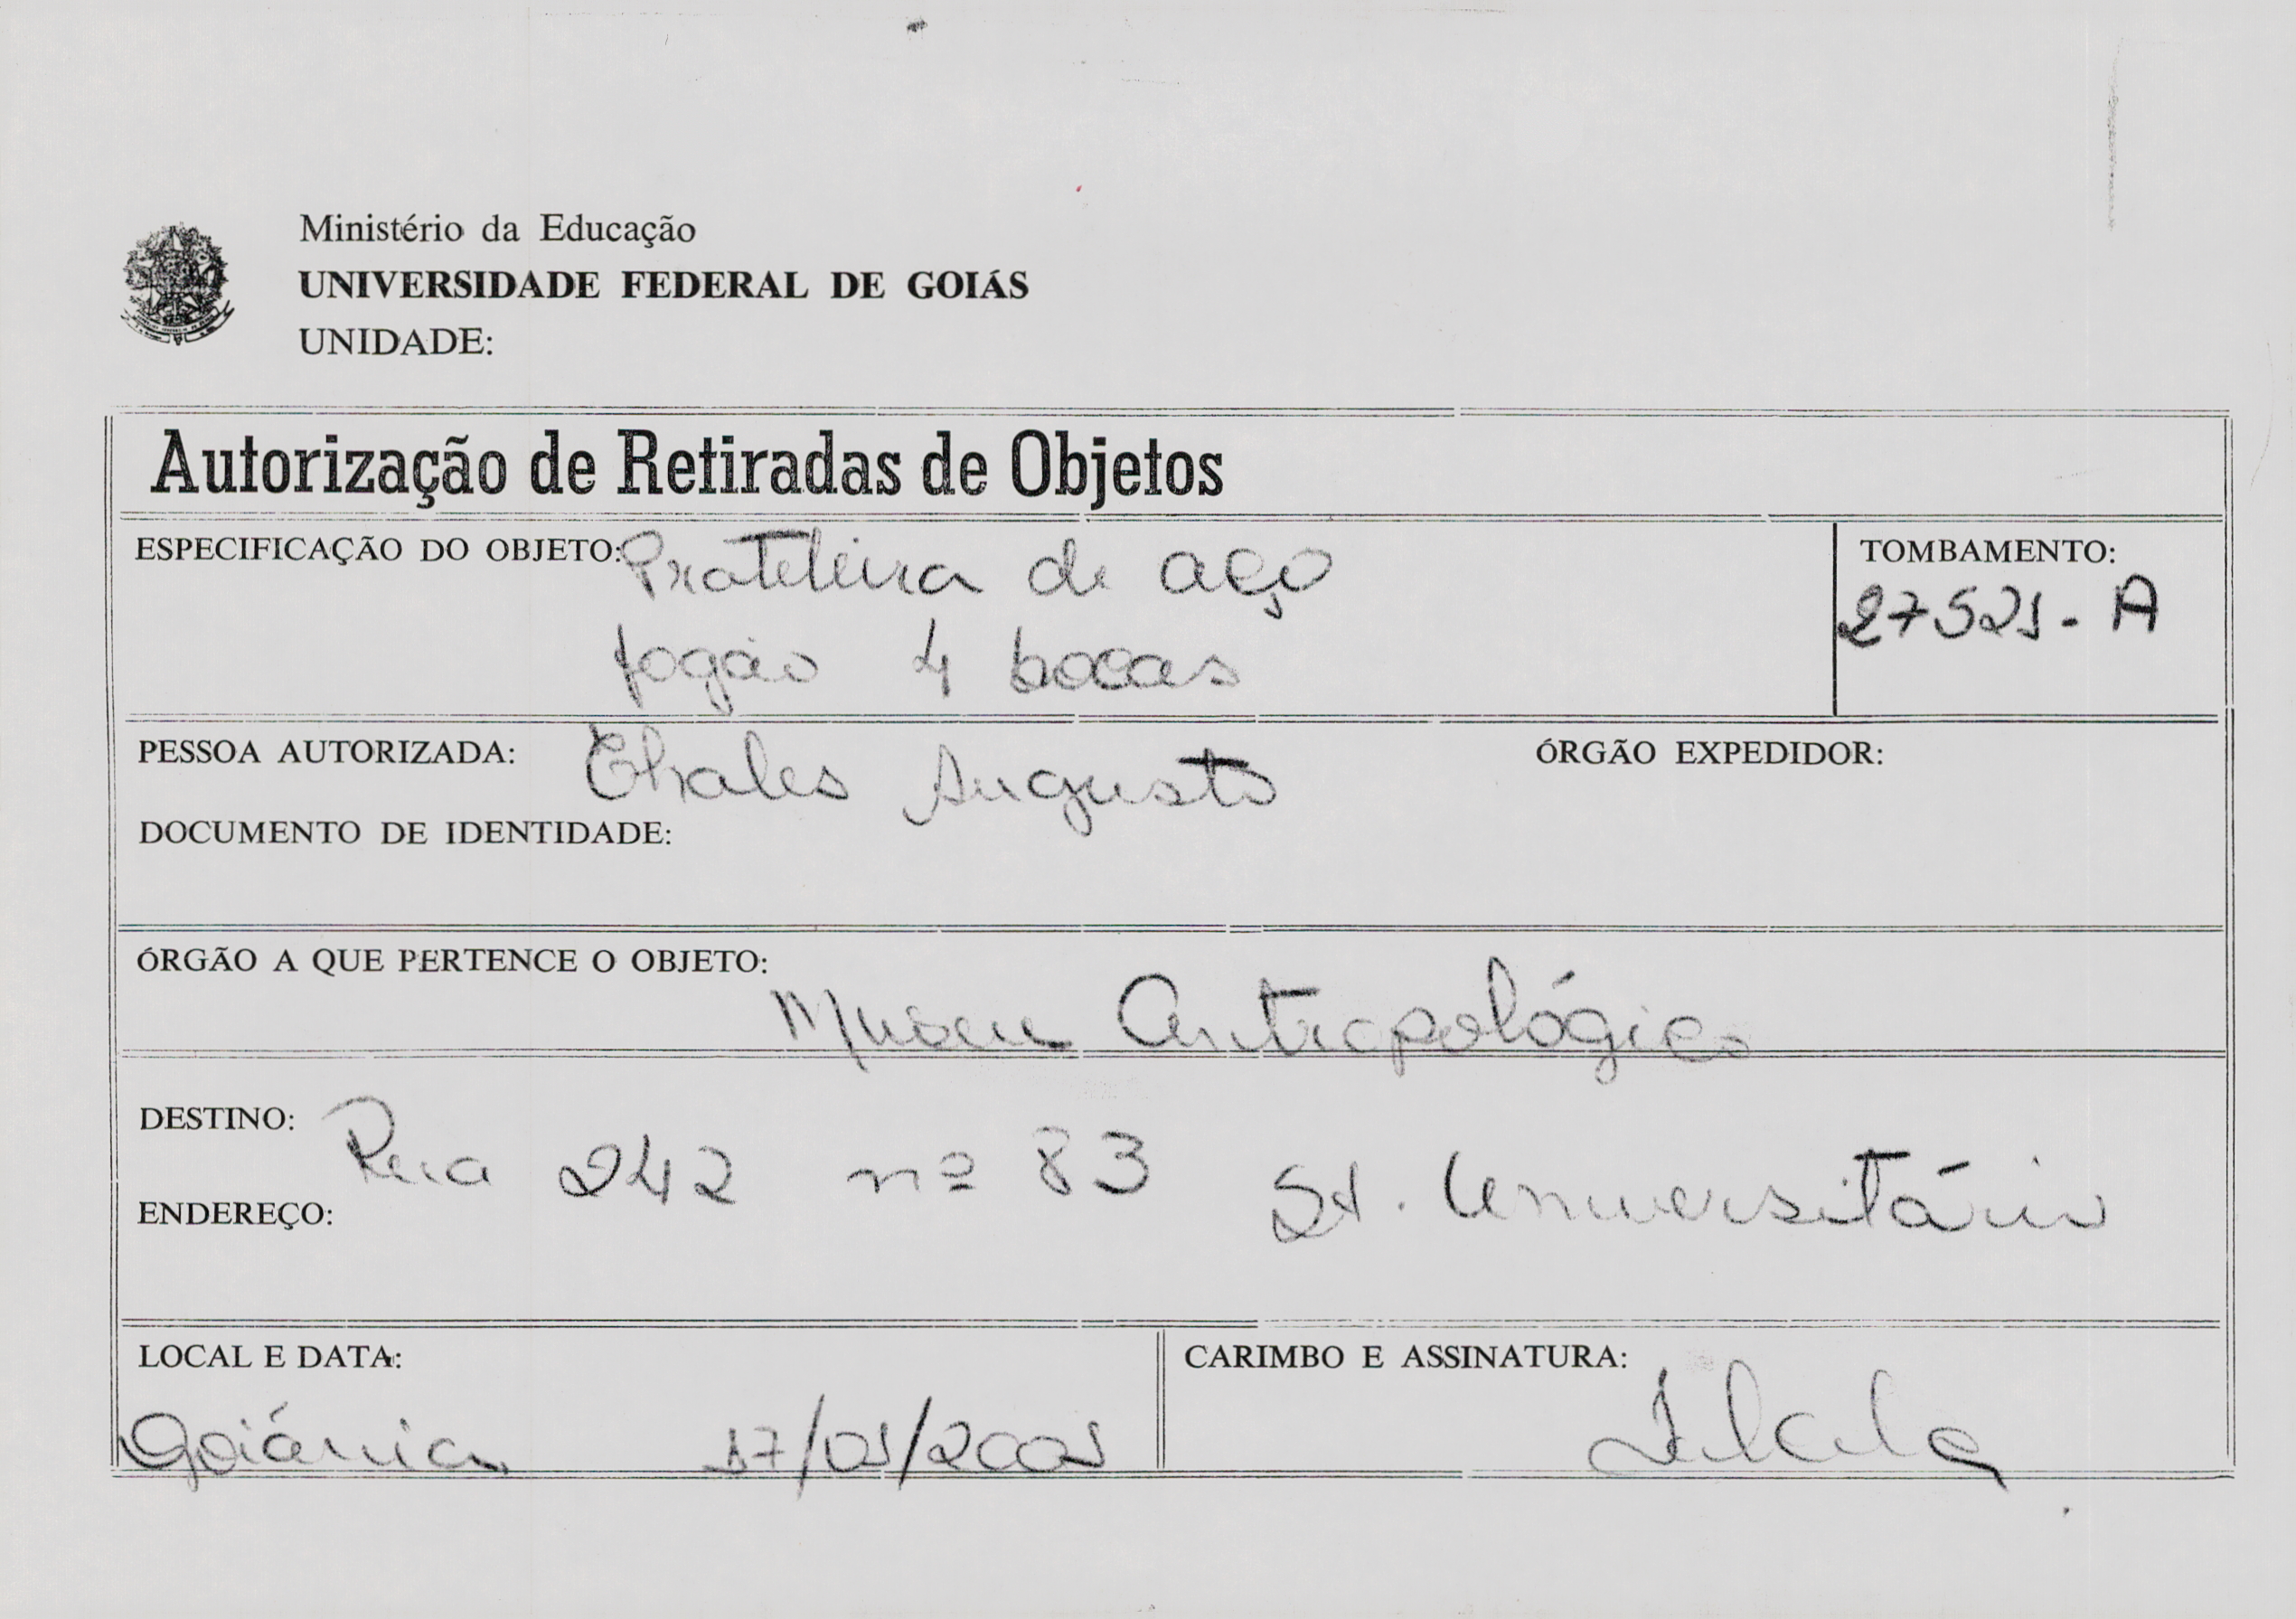 Ministério da Educação
UNIVERSIDADE FEDERAL DE GOIÁS
UNIDADE:
Autorização de Retiradas de Objetos
ESPECIFICAÇÃO DO OBJETO: Prateleira de aço
TOMBAMENTO:
27521-A
fogão 4 bocas
PESSOA AUTORIZADA: Thales Augusto
ÓRGÃO EXPEDIDOR:
DOCUMENTO DE IDENTIDADE:
ÓRGÃO A QUE PERTENCE O OBJETO:
Museu Antropológico
DESTINO: Rua 242 nº 83 St. Universitário
ENDEREÇO:
LOCAL E DATA:
Goiânia 17/01/2001
CARIMBO E ASSINATURA: